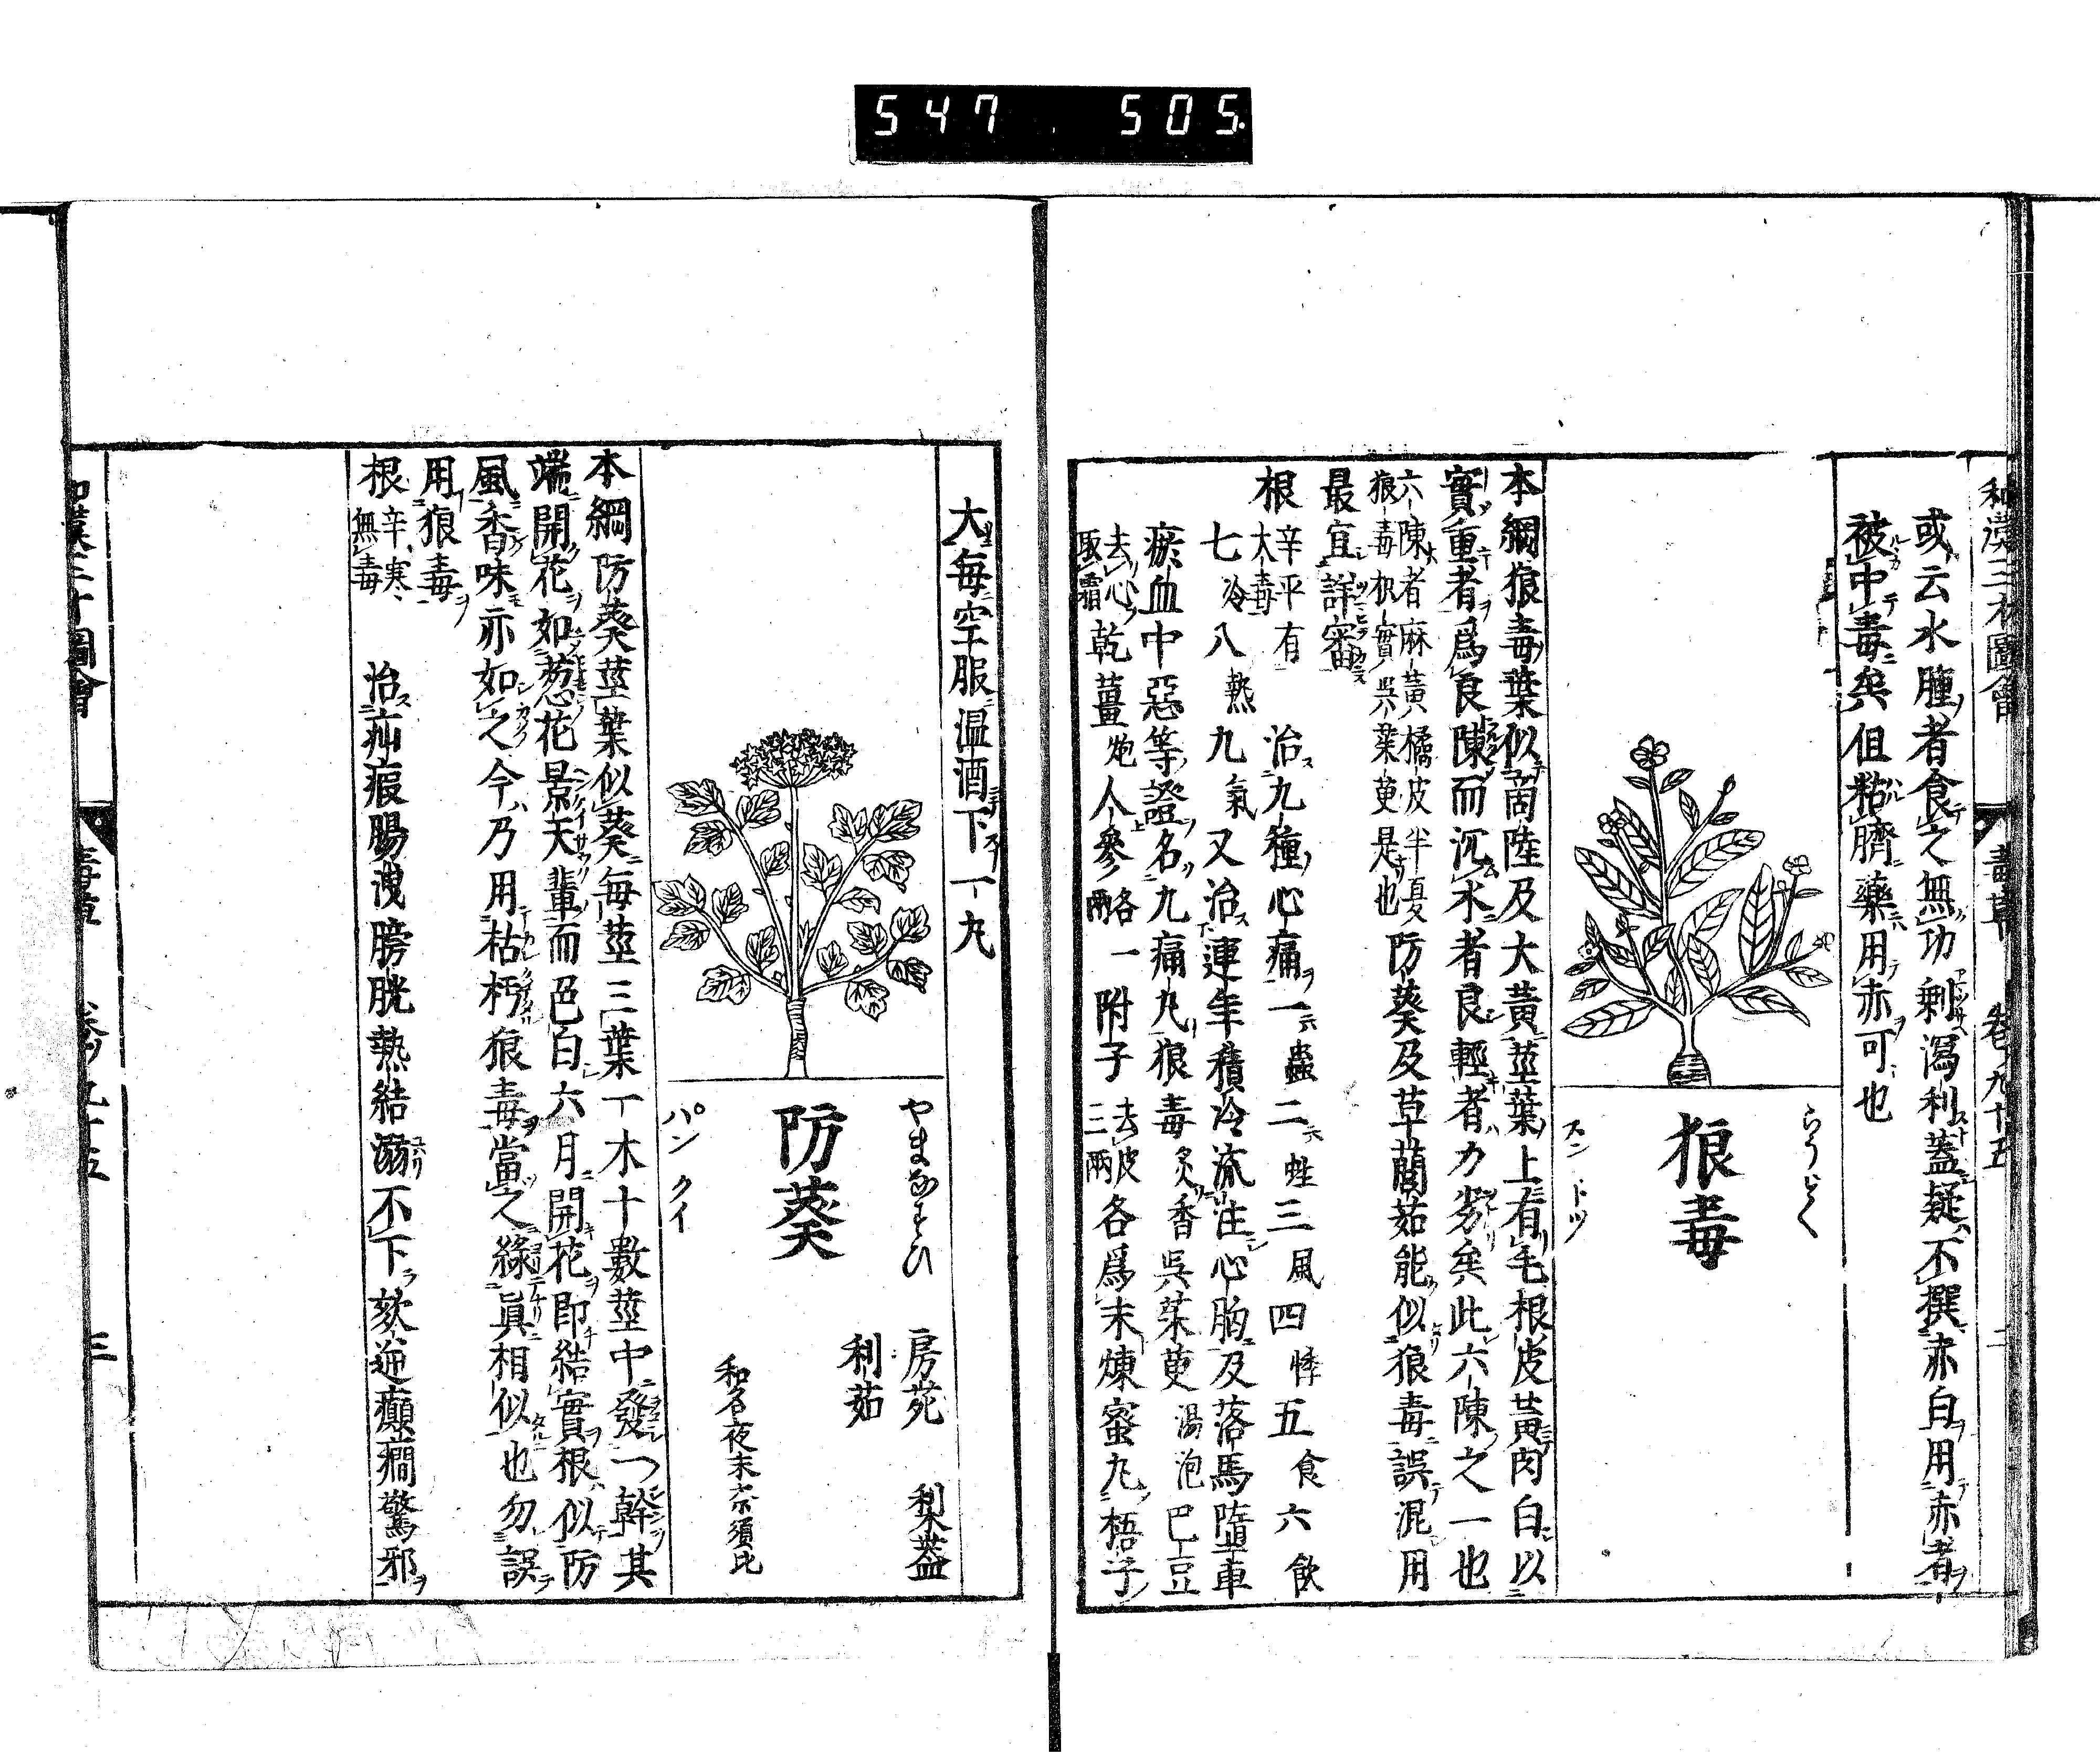 547 505
和漢三才圖會 毒草 卷九十五 二
或云水腫者食之無功剰瀉利蓋疑不撰赤白用赤者
被中毒矣但粘臍藥用赤可也
らうどく
狼毒
スン ドツ
本綱狼毒葉似商陸及大黃莖葉上有毛根皮黃肉白以
實重者爲良陳而沉水者良輕者力劣矣此六陳之一也
六陳者麻黃橘皮半夏
狼毒枳實吳茱萸是也
防葵及草䕡茹能似狼毒誤混用
最宜詳審
根 辛平有
大毒
治九種心痛一蟲二蛀三風四悸五食六飲
七冷八熱九氣又治連年積冷流注心胸及落馬墮車
瘀血中惡等證名九痛丸狼毒炙香吳茱萸湯泡巴豆
去心
取霜
乾薑炮人參各一
兩
附子去皮
三兩
各爲末煉蜜丸梧子
大每空服温酒下一丸
やまなすひ
防葵
パン クイ
房苑 梨蓋
利茹
和名夜末奈須比
本綱防葵莖葉似葵每莖三葉一本十數莖中發一幹其
端開花如葱花景天輩而色白六月開花即結實根似防
風香味亦如之今乃用枯朽狼毒當之緣眞相似也勿誤
用狼毒
根 辛寒
無毒
治疝瘕腸洩膀胱熱結溺不下欬逆癲癇驚邪
和漢三才圖會 毒草 卷ノ九十五 三